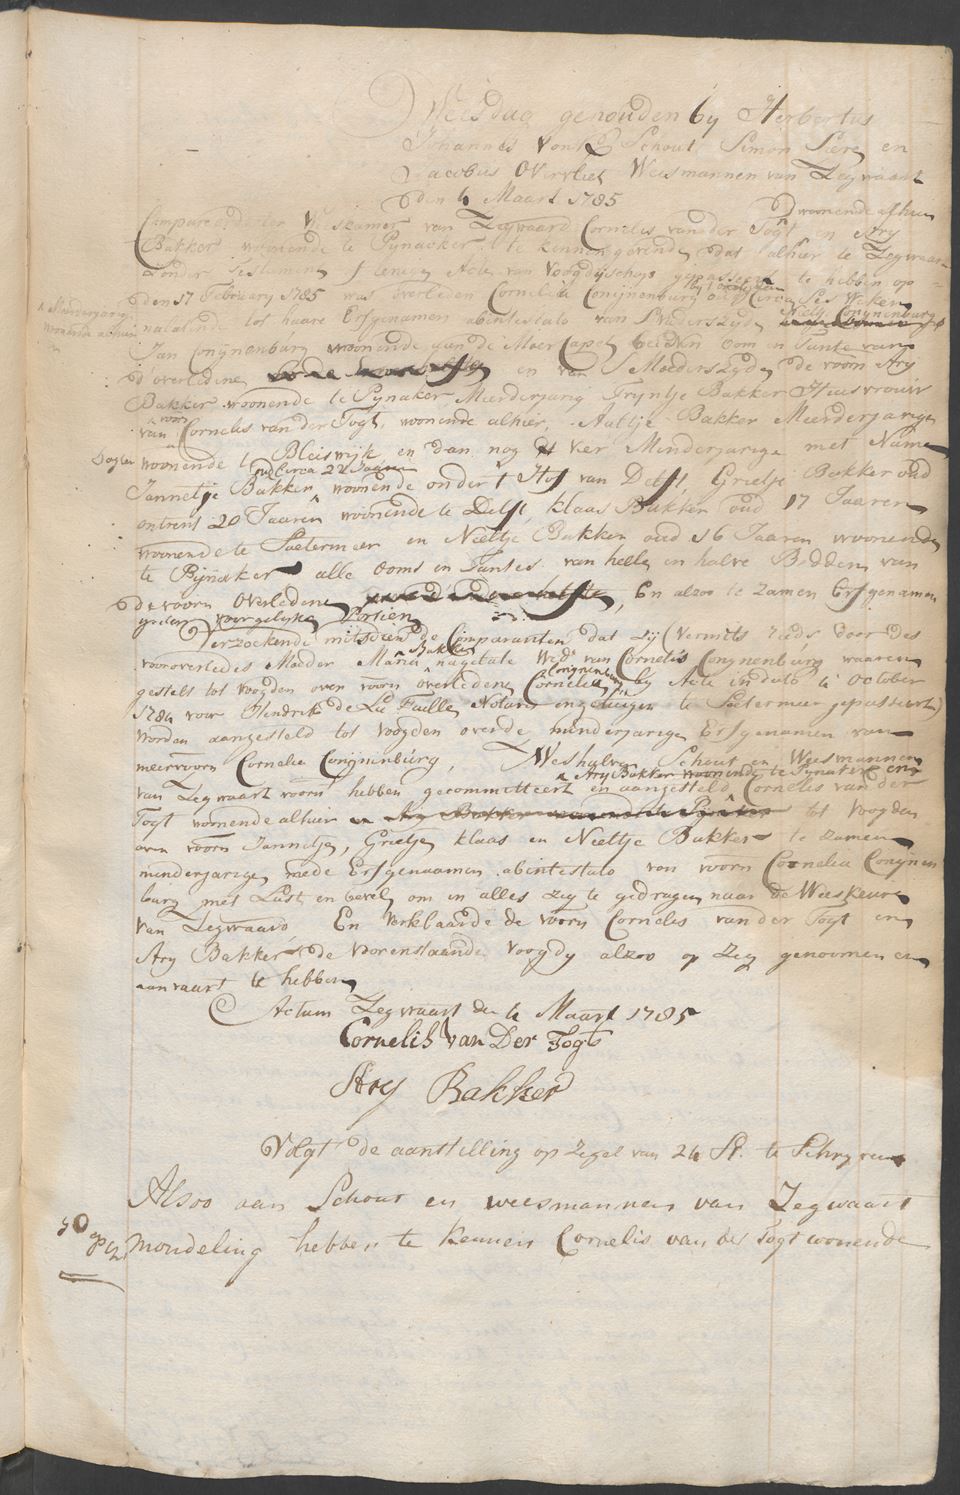 Weisdag gehouden by Herbertus
Johannes Vonk Schout, Simon Siere en
Jacobus Overvliet Weesmannen van Zegwaart
den 4 Maart 1785
woonende alhier
Compareerde ter Weeskamer van Zegwaard Cornelis van der Togt en Ary
Bakker woonende te Pynacker, te kennen gevende dat alhier te Zegwaart
zonder Testament of eenege Acte van Voogdyschap gepasseert te hebben op
den 17 February 1785 was overleden Cornelia Conijnenburg oud Circa Ses Weken
^ Meerderjarig
woonende alhier
nalatende tot haare Erfgenamen abintestato van S Vaders zyde Conijnenburg
Jan Conijnenburg woonende aan de Moercapel beiden Oom en Tante van
d'overledene en van S Moeders zyde de voorn Ary
Bakker woonende te Pynaker Meerderjarig Tryntje Bakker Huisvrouw
van Cornelis van der Togt, woonende alhier, Aaltje Bakker Meerderjarige
Dogter woonende te Bleiswijk, en dan nog vier Minderjarige met Name
oud Circa 22 Jaaren
Jannetje Bakker woonende onder t Hof van Delft, Grietje Bakker oud
ontrent 20 Jaaren woonende te Delft, klaas Bakker oud 17 Jaaren
woonende te Soetermeer en Neeltje Bakker oud 16 Jaaren woonende
te Pijnaker alle Ooms en Tantes van hele en halve Bedden van
de voorn Overledene, En alzoo te zamen Erfgenamen
voor gelyke Portien
Verzoekende mitsdien de Comparanten dat zij (Vermits reeds door des
Bakker
voorn overledes Moeder Maria nagelate Wed: van Cornelis Conijnenburg waaren
Conijnenburg
gestelt tot voogden over voorn overledene Cornelia by Acte in dato 4 October
1784 voor Hendrik de La Faille Notaris en getuigen te Soetermeer gepasseert)
worden aangesteld tot Voogden over de minderjarige Erfgenamen van
meervoorn Cornelia Conijnenburg, Weshalve Schout en Weesmannen
^ Ary Bakker woonende te Pynaker en
van Zegwaart voorn hebben gecommitteert en aangesteld Cornelis van der
Togt woonende alhier en Ary Bakker woonende te Pynaker tot Voogden
over voorn Jannetje, Grietje klaas en Neeltje Bakker te zamen
minderjarige mede Erfgenaamen abintestato van voorn Cornelia Conijnen
burg met Last en bevel om in alles zig te gedragen naar de Weeskeure
van Zegwaard, En verklaarde de voorn Cornelis van der Togt en
Ary Bakker de voorenstaande voogdy alzoo op zig genoomen en
aanvaart te hebben
Actum Zegwaart den 4 Maart 1785
Cornelis van Der Togt
Ary Bakker
Volgt de aanstelling op zegel van 24 St. te Schryven
Alsoo aan Schout en weesmannen van Zegwaart
mondeling hebben te kennen Cornelis van der Togt woonende